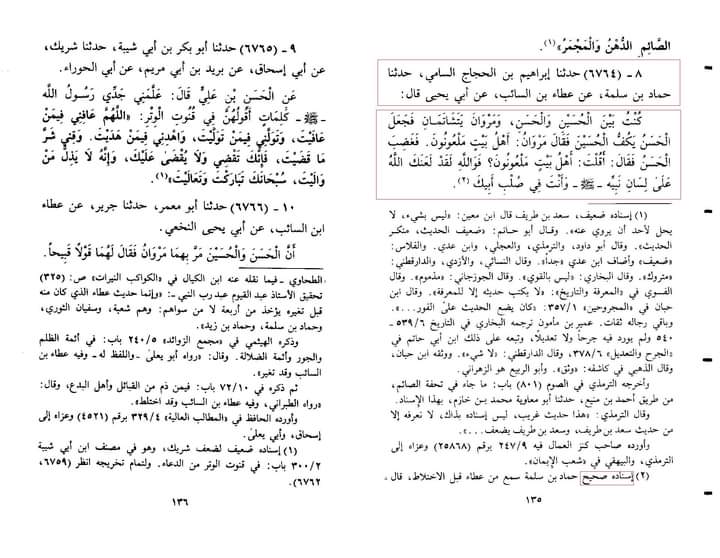 الصَّائِمِ الدُّهْنُ وَالْمَجْمَرُ»(١).
٨ - (٦٧٦٤) حدثنا إبراهيم بن الحجاج السامي، حدثنا
حماد بن سلمة، عن عطاء بن السائب، عن أبي يحيى قال:
كُنْتُ بَيْنَ الْحُسَيْنِ وَالْحَسَنِ، وَمَرْوَانَ يَتَشَاتَمَانِ فَجَعَلَ
الْحَسَنُ يَكُفُّ الْحُسَيْنَ فَقَالَ مَرْوَانُ: أَهْلُ بَيْتٍ مَلْعُونُونَ. فَغَضِبَ
الْحَسَنُ فَقَالَ: أَقُلْتَ: أَهْلُ بَيْتٍ مَلْعُونُونَ؟ فَوَاللَّهِ لَقَدْ لَعَنَكَ اللَّهُ
عَلَى لِسَانِ نَبِيِّهِ - ﷺ - وَأَنْتَ فِي صُلْبِ أَبِيكَ(٢).
(١) إسناده ضعيف، سعد بن طريف قال ابن معين: «ليس بشيء، لا
يحل لأحد أن يروي عنه». وقال أبو حاتم: «ضعيف الحديث، منكر
الحديث». وقال أبو داود، والترمذي، والعجلي، وابن عدي. والفلاس:
«ضعيف» وأضاف ابن عدي «جداً». وقال النسائي، والأزدي، والدارقطني:
«متروك». وقال البخاري: «ليس بالقوي». وقال الجوزجاني: «مذموم». وقال
الفسوي في «المعرفة والتاريخ»: «لا يكتب حديثه إلا للمعرفة». وقال ابن
حبان في «المجروحين» ٣٥٧/١: «كان يضع الحديث على الفور...».
وباقي رجاله ثقات. عمير بن مأمون ترجمه البخاري في التاريخ ٥٣٩/٦ -
٥٤٠ ولم يورد فيه جرحاً ولا تعديلاً، وتبعه على ذلك ابن أبي حاتم في
«الجرح والتعديل» ٣٧٨/٦، وقال الدارقطني: «لا شيء». ووثقه ابن حبان،
وقال الذهبي في كاشفه: «وثق». وأبو الربيع هو الزهراني.
وأخرجه الترمذي في الصوم (٨٠١) باب: ما جاء في تحفة الصائم،
من طريق أحمد بن منيع، حدثنا أبو معاوية محمد بن خازم، بهذا الإسناد.
وقال الترمذي: «هذا حديث غريب، ليس إسناده بذاك، لا نعرفه إلا
من حديث سعد بن طريف، وسعد بن طريف يضعف...».
وأورده صاحب كنز العمال فيه ٢٤٧/٩ برقم (٢٥٨٦٨) وعزاه إلى
الترمذي، والبيهقي في «شعب الإيمان».
(٢) إسناده صحيح حماد بن سلمة سمع من عطاء قبل الاختلاط، قال
١٣٥
٩ - (٦٧٦٥) حدثنا أبو بكر بن أبي شيبة، حدثنا شريك،
عن أبي إسحاق، عن بريد بن أبي مريم، عن أبي الحوراء.
عَنِ الْحَسَنِ بْنِ عَلِيٍّ قَالَ: عَلَّمَنِي جَدِّي رَسُولُ اللَّهِ
- ﷺ - كَلِمَاتٍ أَقُولُهُنَّ فِي قُنُوتِ الْوِتْرِ: «اللَّهُمَّ عَافِنِي فِيمَنْ
عَافَيْتَ، وَتَوَلَّنِي فِيمَنْ تَوَلَّيْتَ، وَاهْدِنِي فِيمَنْ هَدَيْتَ. وَقِنِي شَرَّ
مَا قَضَيْتَ، فَإِنَّكَ تَقْضِي وَلَا يُقْضَى عَلَيْكَ، وَإِنَّهُ لَا يَذِلُّ مَنْ
وَالَيْتَ، سُبْحَانَكَ تَبَارَكْتَ وَتَعَالَيْتَ»(١).
١٠ - (٦٧٦٦) حدثنا أبو معمر، حدثنا جرير، عن عطاء
ابن السائب، عن أبي يحيى النخعي.
أَنَّ الْحَسَنَ وَالْحُسَيْنَ مَرَّ بِهِمَا مَرْوَانُ فَقَالَ لَهُمَا قَوْلاً قَبِيحاً.
الطحاوي - فيما نقله عنه ابن الكيال في «الكواكب النيرات» ص: (٣٢٥)
تحقيق الأستاذ عبد القيوم عبد رب النبي -: «وإنما حديث عطاء الذي كان منه
قبل تغيره يؤخذ من أربعة لا من سواهم: وهم شعبة، وسفيان الثوري،
وحماد بن سلمة، وحماد بن زيد».
وذكره الهيثمي في «مجمع الزوائد» ٢٤٠/٥ باب: في أئمة الظلم
والجور وأئمة الضلالة. وقال: «رواه أبو يعلى - واللفظ له - وفيه عطاء بن
السائب وقد تغير».
ثم ذكره في ٧٢/١٠ باب: فيمن ذم من القبائل وأهل البدع، وقال:
«رواه الطبراني، وفيه عطاء بن السائب وقد اختلط».
وأورده الحافظ في «المطالب العالية» ٣٢٩/٤ برقم (٤٥٢١) وعزاه إلى
إسحاق، وأبي يعلى.
(١) إسناده ضعيف لضعف شريك، وهو في مصنف ابن أبي شيبة
٣٠٠/٢ باب: في قنوت الوتر من الدعاء. ولتمام تخريجه انظر (٦٧٥٩،
٦٧٦٢).
١٣٦